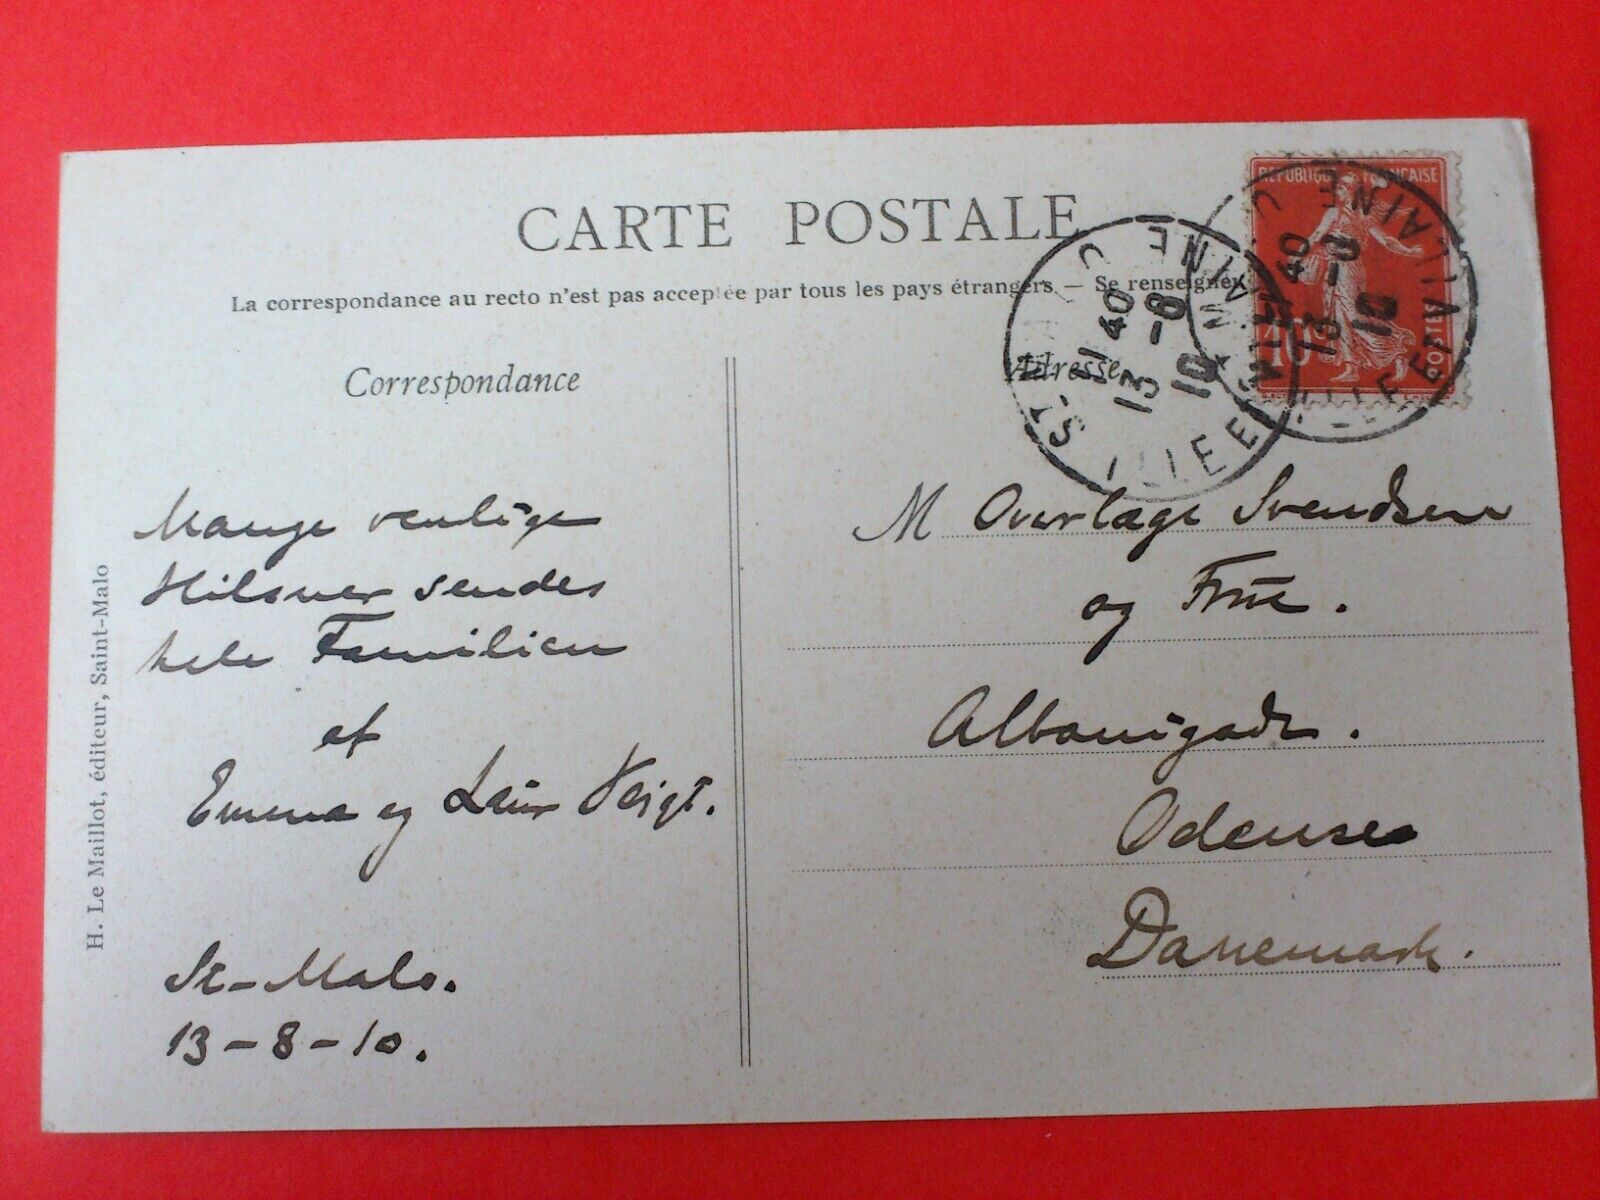 CARTE POSTALE
La correspondance au recto n'est pas acceptée par tous les pays étrangers — Se renseigner
Correspondance
Adresse
RÉPUBLIQUE FRANÇAISE
10
POSTES
ST-MALO
ILLE ET VILAINE
11 40
13 -8
10
11 40
13 -8
10
ILLE ET VILAINE
Mange venlige
Hilsner sendes
hele Familien
af
Emma og Laur Voigt.
St-Malo.
13-8-10.
M Overlæge Svendsen
og Frue.
Albanigade.
Odense
Danemark.
H. Le Maillot, éditeur, Saint-Malo